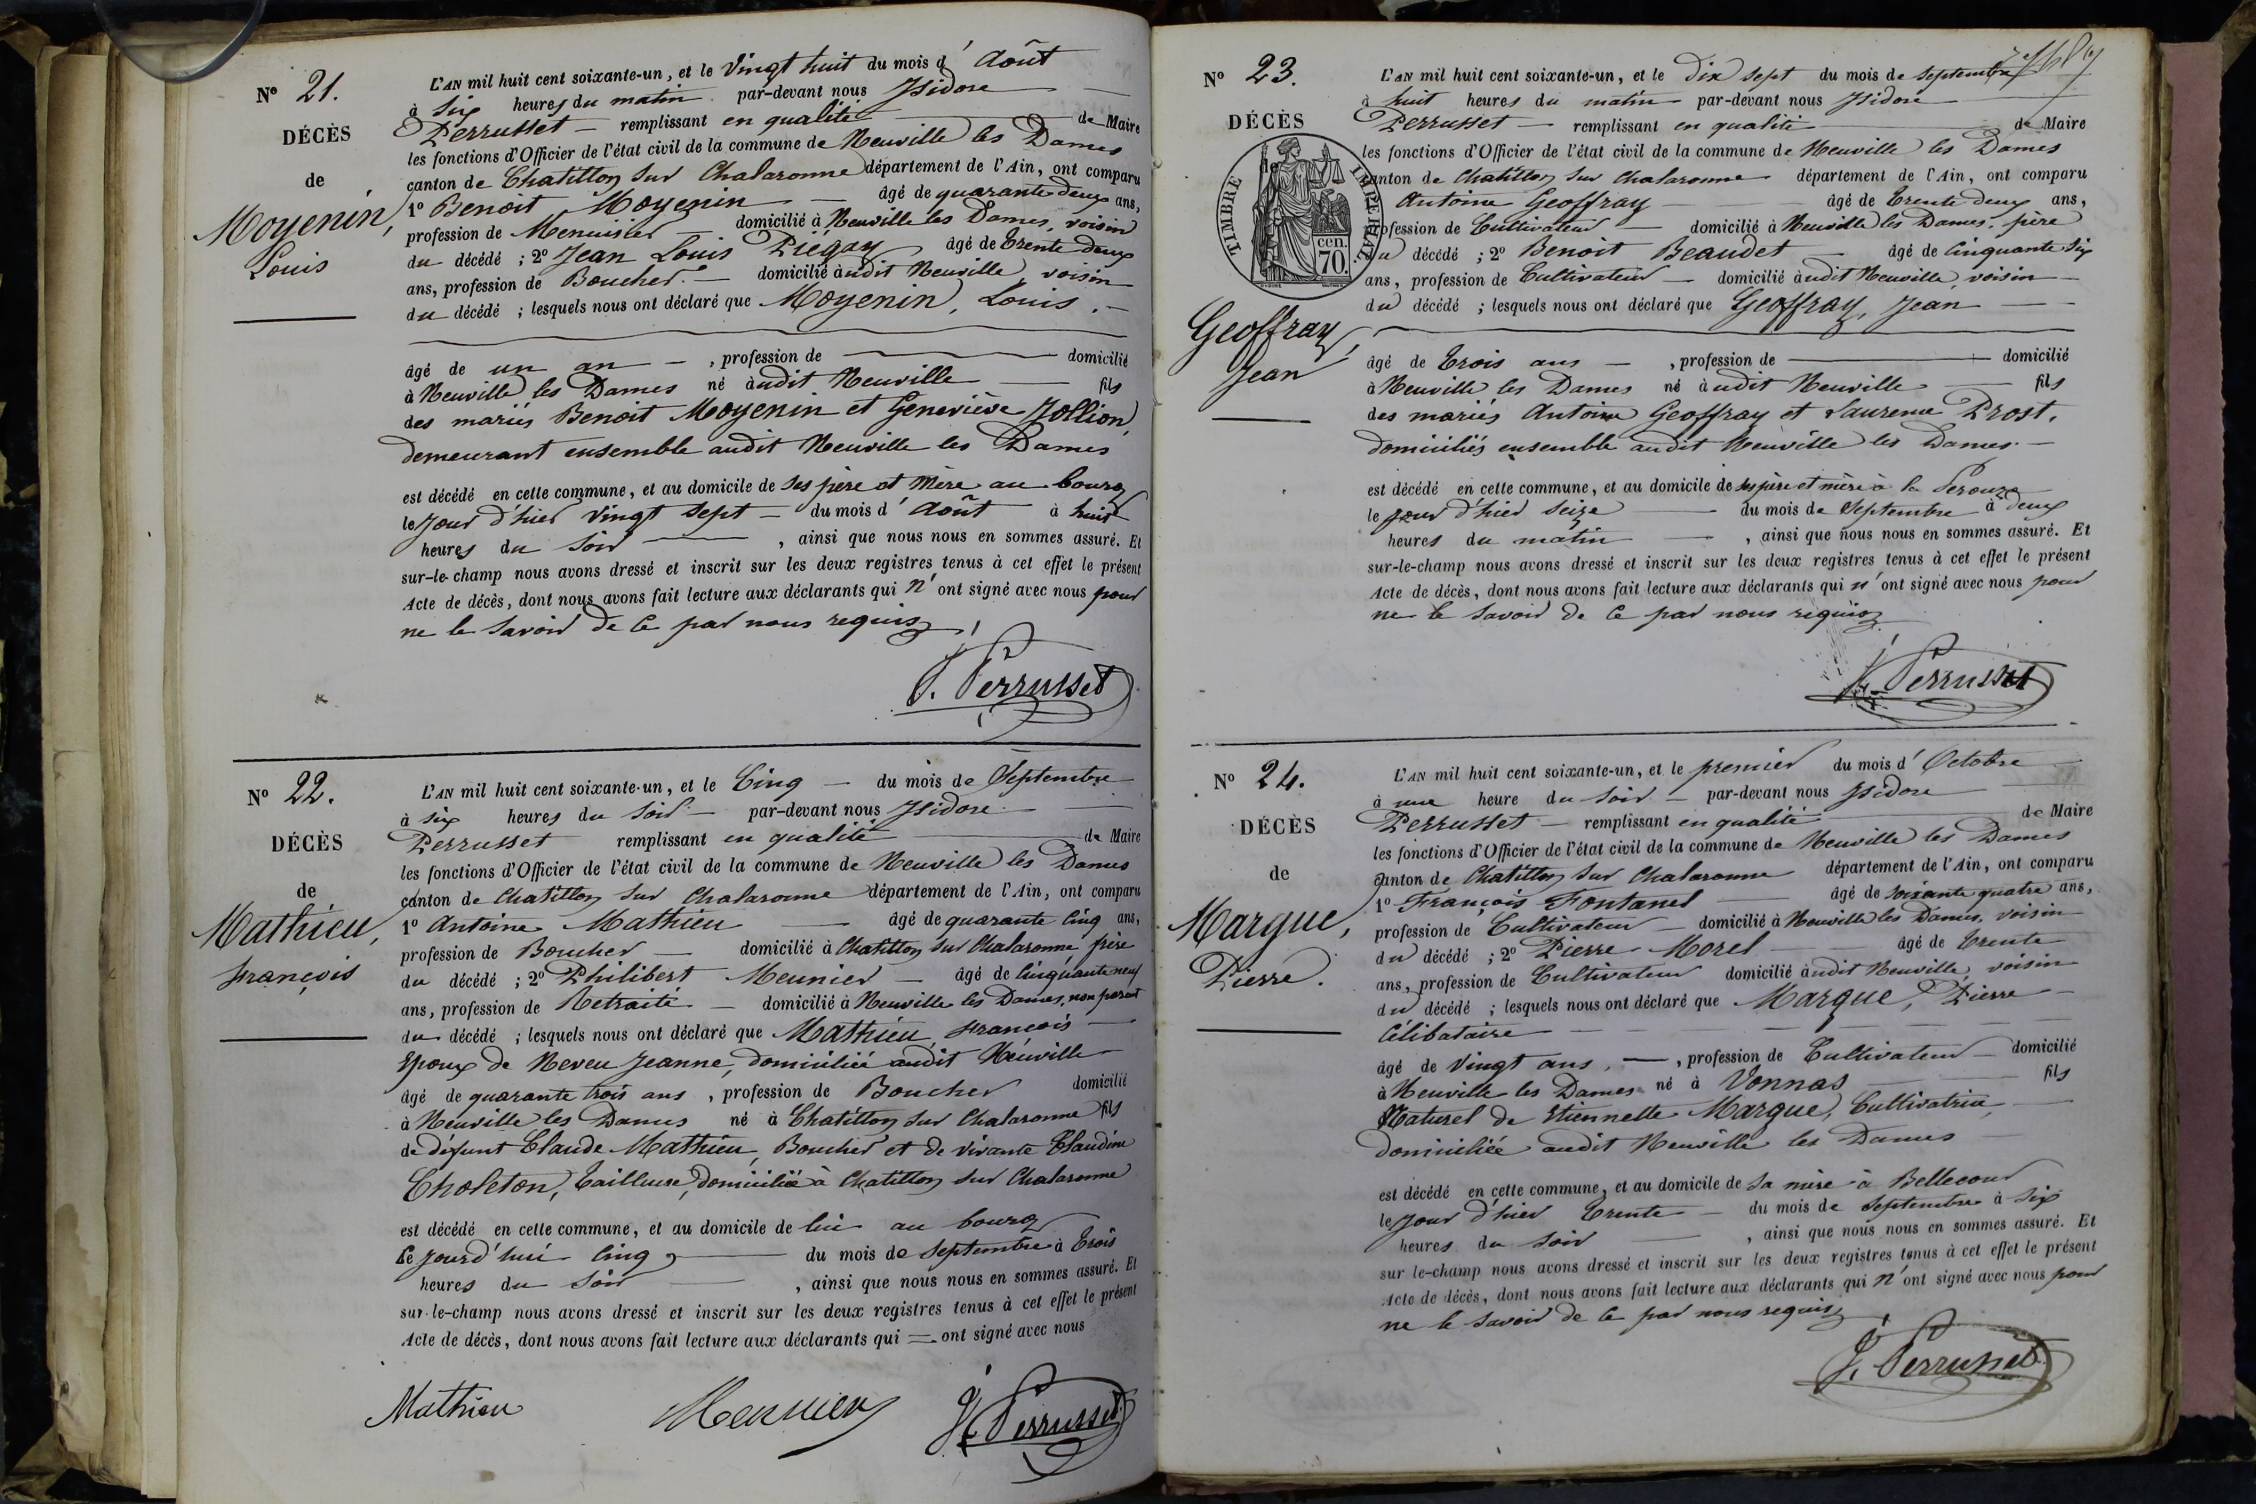 N° 21.
DÉCÈS
de
Moyenin,
Louis
L'AN mil huit cent soixante-un, et le Vingt huit du mois d'Août
à Six heures du matin par-devant nous Isidore
Perrusset — remplissant en qualité de Maire
les fonctions d'Officier de l'état civil de la commune de Neuville les Dames
canton de Chatillon sur Chalaronne département de l'Ain, ont comparu
1° Benoit Moyenin — âgé de quarante deux ans,
profession de Menuisier — domicilié à Neuville les Dames, voisin
du décédé ; 2° Jean Louis Piégay âgé de trente deux
ans, profession de Boucher — domicilié audit Neuville, voisin
du décédé ; lesquels nous ont déclaré que Moyenin, Louis,
âgé de un an — , profession de — domicilié
à Neuville les Dames né audit Neuville — fils
des mariés Benoit Moyenin et Geneviève Jollion,
demeurant ensemble audit Neuville les Dames
est décédé en cette commune, et au domicile de ses père et mère au bourg
le jour d'hier vingt sept — du mois d'Août à huit
heures du soir — , ainsi que nous nous en sommes assuré. Et
sur-le-champ nous avons dressé et inscrit sur les deux registres tenus à cet effet le présent
Acte de décès, dont nous avons fait lecture aux déclarants qui n'ont signé avec nous pour
ne le savoir de ce par nous requis
J. Perrusset
N° 22.
DÉCÈS
de
Mathieu,
François
L'AN mil huit cent soixante-un, et le Cinq — du mois de Septembre
à six heures du soir — par-devant nous Isidore
Perrusset remplissant en qualité de Maire
les fonctions d'Officier de l'état civil de la commune de Neuville les Dames
canton de Chatillon sur Chalaronne département de l'Ain, ont comparu
1° Antoine Mathieu — âgé de quarante cinq ans,
profession de Boucher — domicilié à Chatillon sur Chalaronne frère
du décédé ; 2° Philibert Meunier — âgé de cinquante neuf
ans, profession de Retraité — domicilié à Neuville les Dames, non parent
du décédé ; lesquels nous ont déclaré que Mathieu, François —
Epoux de Neveu Jeanne, domiciliée audit Neuville
âgé de quarante trois ans , profession de Boucher domicilié
à Neuville les Dames né à Chatillon sur Chalaronne fils
de défunt Claude Mathieu, Boucher et de vivante Claudine
Choleton, Tailleuse, domiciliée à Chatillon sur Chalaronne
est décédé en cette commune, et au domicile de lui au bourg
le jourd'hui cinq — du mois de septembre à trois
heures du soir — , ainsi que nous nous en sommes assuré. Et
sur-le-champ nous avons dressé et inscrit sur les deux registres tenus à cet effet le présent
Acte de décès, dont nous avons fait lecture aux déclarants qui = ont signé avec nous
Mathieu Meunier J. Perrusset
N° 23.
DÉCÈS
de
TIMBRE IMPÉRIAL
70 cen.
Geoffray,
Jean
L'AN mil huit cent soixante-un, et le Dix sept du mois de septembre
à huit heures du matin — par-devant nous Isidore
Perrusset — remplissant en qualité de Maire
les fonctions d'Officier de l'état civil de la commune de Neuville les Dames
canton de Chatillon sur Chalaronne département de l'Ain, ont comparu
Antoine Geoffray — âgé de trente deux ans,
profession de Cultivateur — domicilié à Neuville les Dames, père
du décédé ; 2° Benoit Beaudet — âgé de cinquante six
ans, profession de Cultivateur — domicilié audit Neuville, voisin —
du décédé ; lesquels nous ont déclaré que Geoffray, Jean —
âgé de trois ans — , profession de — domicilié
à Neuville les Dames né audit Neuville — fils
des mariés Antoine Geoffray et Laurence Prost,
domiciliés ensemble audit Neuville les Dames —
est décédé en cette commune, et au domicile de ses père et mère à la Perouze
le jour d'hier seize — du mois de Septembre à deux
heures du matin — , ainsi que nous nous en sommes assuré. Et
sur-le-champ nous avons dressé et inscrit sur les deux registres tenus à cet effet le présent
Acte de décès, dont nous avons fait lecture aux déclarants qui n'ont signé avec nous pour
ne le savoir de ce par nous requis
J. Perrusset
N° 24.
DÉCÈS
de
Marque,
Pierre.
L'AN mil huit cent soixante-un, et le premier du mois d'Octobre
à une heure du soir — par-devant nous Isidore
Perrusset — remplissant en qualité de Maire
les fonctions d'Officier de l'état civil de la commune de Neuville les Dames
canton de Chatillon sur Chalaronne département de l'Ain, ont comparu
1° François Fontanel — âgé de soixante quatre ans,
profession de Cultivateur — domicilié à Neuville les Dames, voisin
du décédé ; 2° Pierre Morel — âgé de trente
ans, profession de Cultivateur domicilié audit Neuville, voisin
du décédé ; lesquels nous ont déclaré que Marque, Pierre —
Célibataire —
âgé de Vingt ans, — , profession de Cultivateur — domicilié
à Neuville les Dames né à Vonnas — fils
Naturel de Etiennette Marque, Cultivatrice,
domiciliée audit Neuville les Dames
est décédé en cette commune, et au domicile de sa mère à Bellecour
le jour d'hier trente — du mois de septembre à six
heures du soir — , ainsi que nous nous en sommes assuré. Et
sur le-champ nous avons dressé et inscrit sur les deux registres tenus à cet effet le présent
Acte de décès, dont nous avons fait lecture aux déclarants qui n'ont signé avec nous pour
ne le savoir de ce par nous requis
J. Perrusset